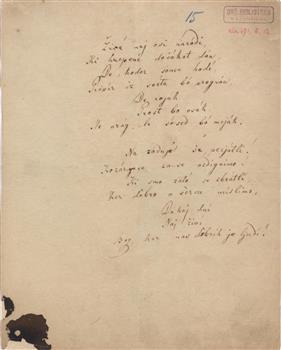 15
Živé naj vsi naródi,
Ki hrepené dočakat dan,
De koder sonce hodi,
Prepir iz sveta bo pregnan,
rojak
Prost bo vsak
Ne vrag, le sosed bo mejak.
Na zadnje še, prijatli!
Kozarce za-se vzdignimo!
Ki smo zató se zbratli
Ker dobro v serce mislimo,
Dókaj dni
Naj živi
Bog, kar nas dobrih je ljudi!